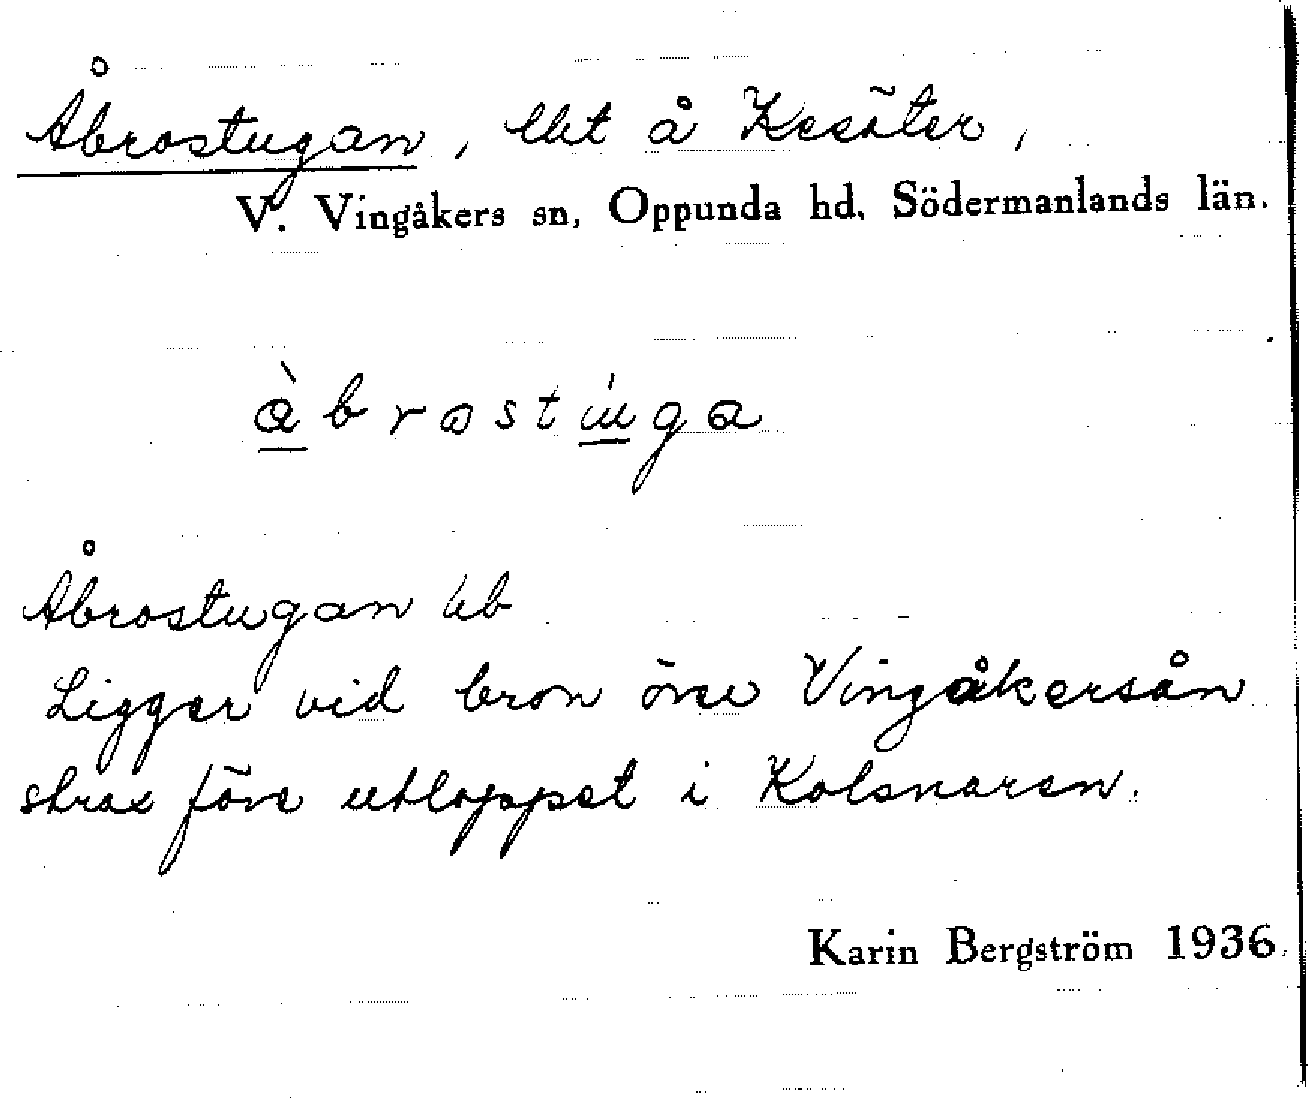 Åbrostugan, lht å Kesäter,
V. Vingåkers sn, Oppunda hd. Södermanlands län.
Åbrostugan
Ligger vid bron över Vingåkersån
strax före utloppet i Kolsnaren.
Karin Bergström 1936